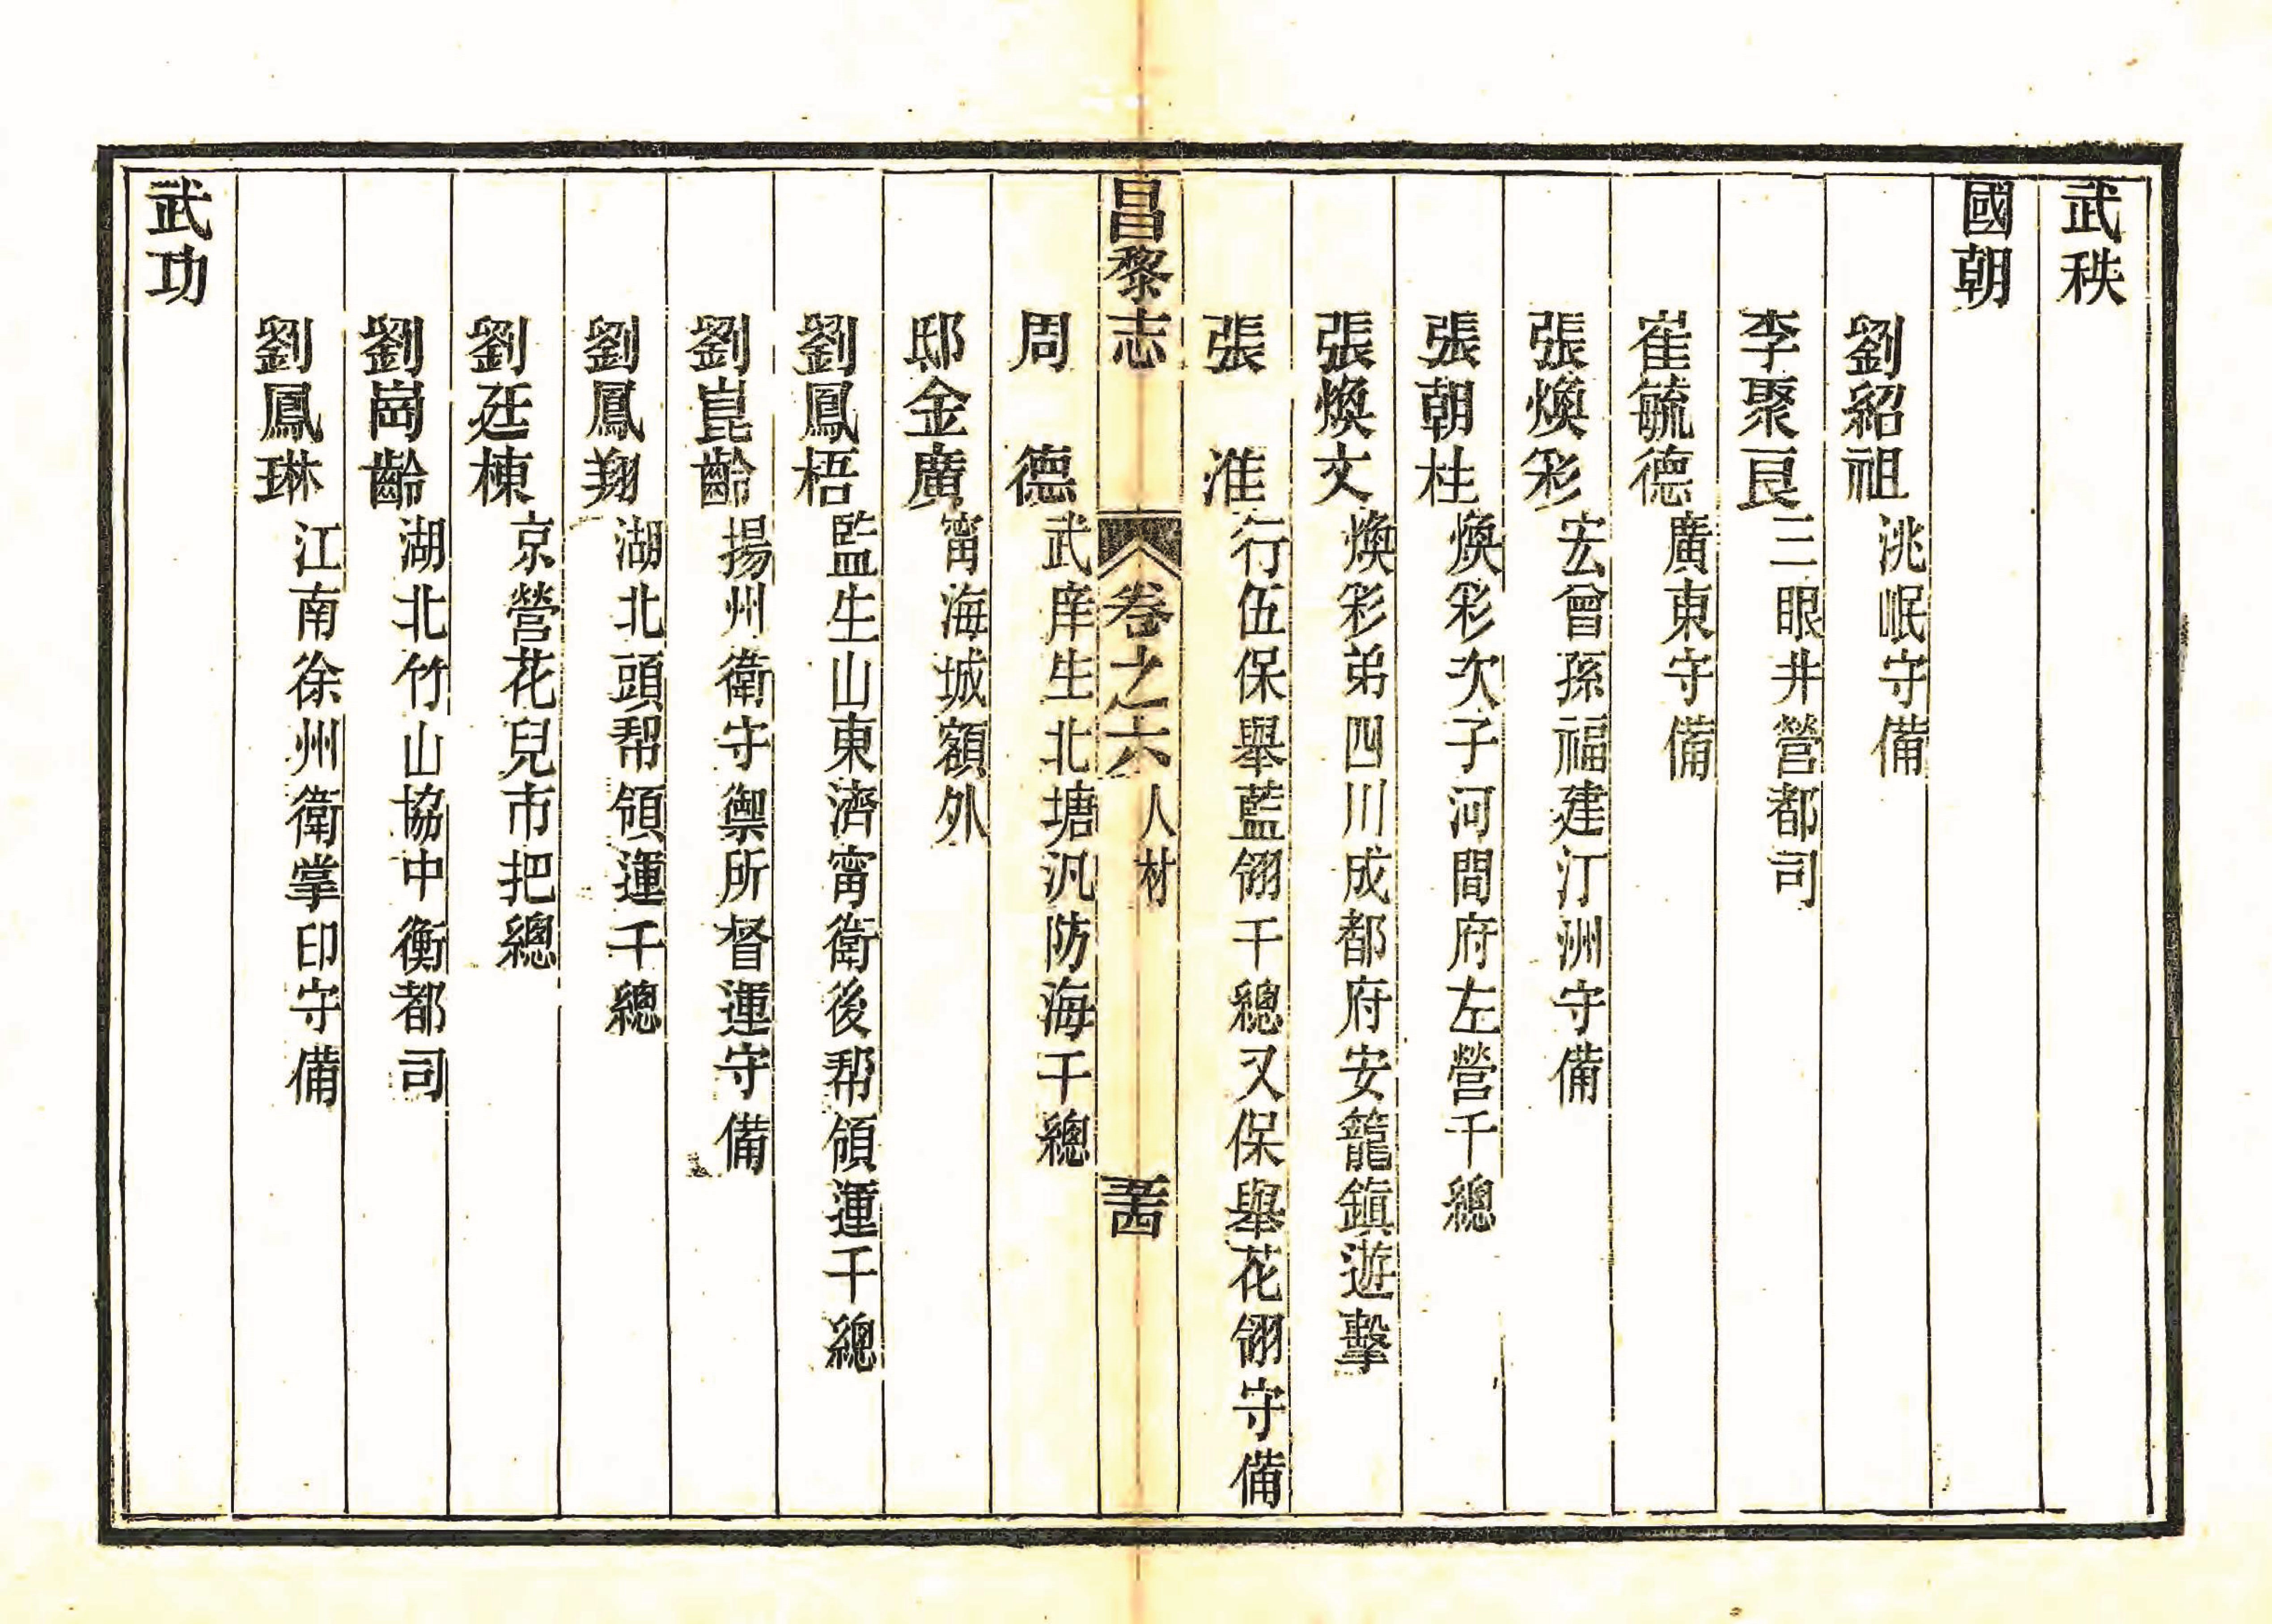 武秩
國朝
劉紹祖 洮岷守備
李聚良 三眼井營都司
崔毓德 廣東守備
張煥彩 宏曾孫福建汀洲守備
張朝柱 煥彩次子河間府左營千總
張煥文 煥彩弟四川成都府安籠鎮遊擊
張淮 行伍保舉藍翎千總又保舉花翎守備
昌黎志 卷之六 人材
周德 武庠生北塘汛防海千總
邸金廣 甯海城額外
劉鳳梧 監生山東濟甯衛後帮領運千總
劉崑齡 揚州衛守禦所督運守備
劉鳳翔 湖北頭帮領運千總
劉廷棟 京營花兒市把總
劉崗齡 湖北竹山協中衡都司
劉鳳琳 江南徐州衛掌印守備
武功